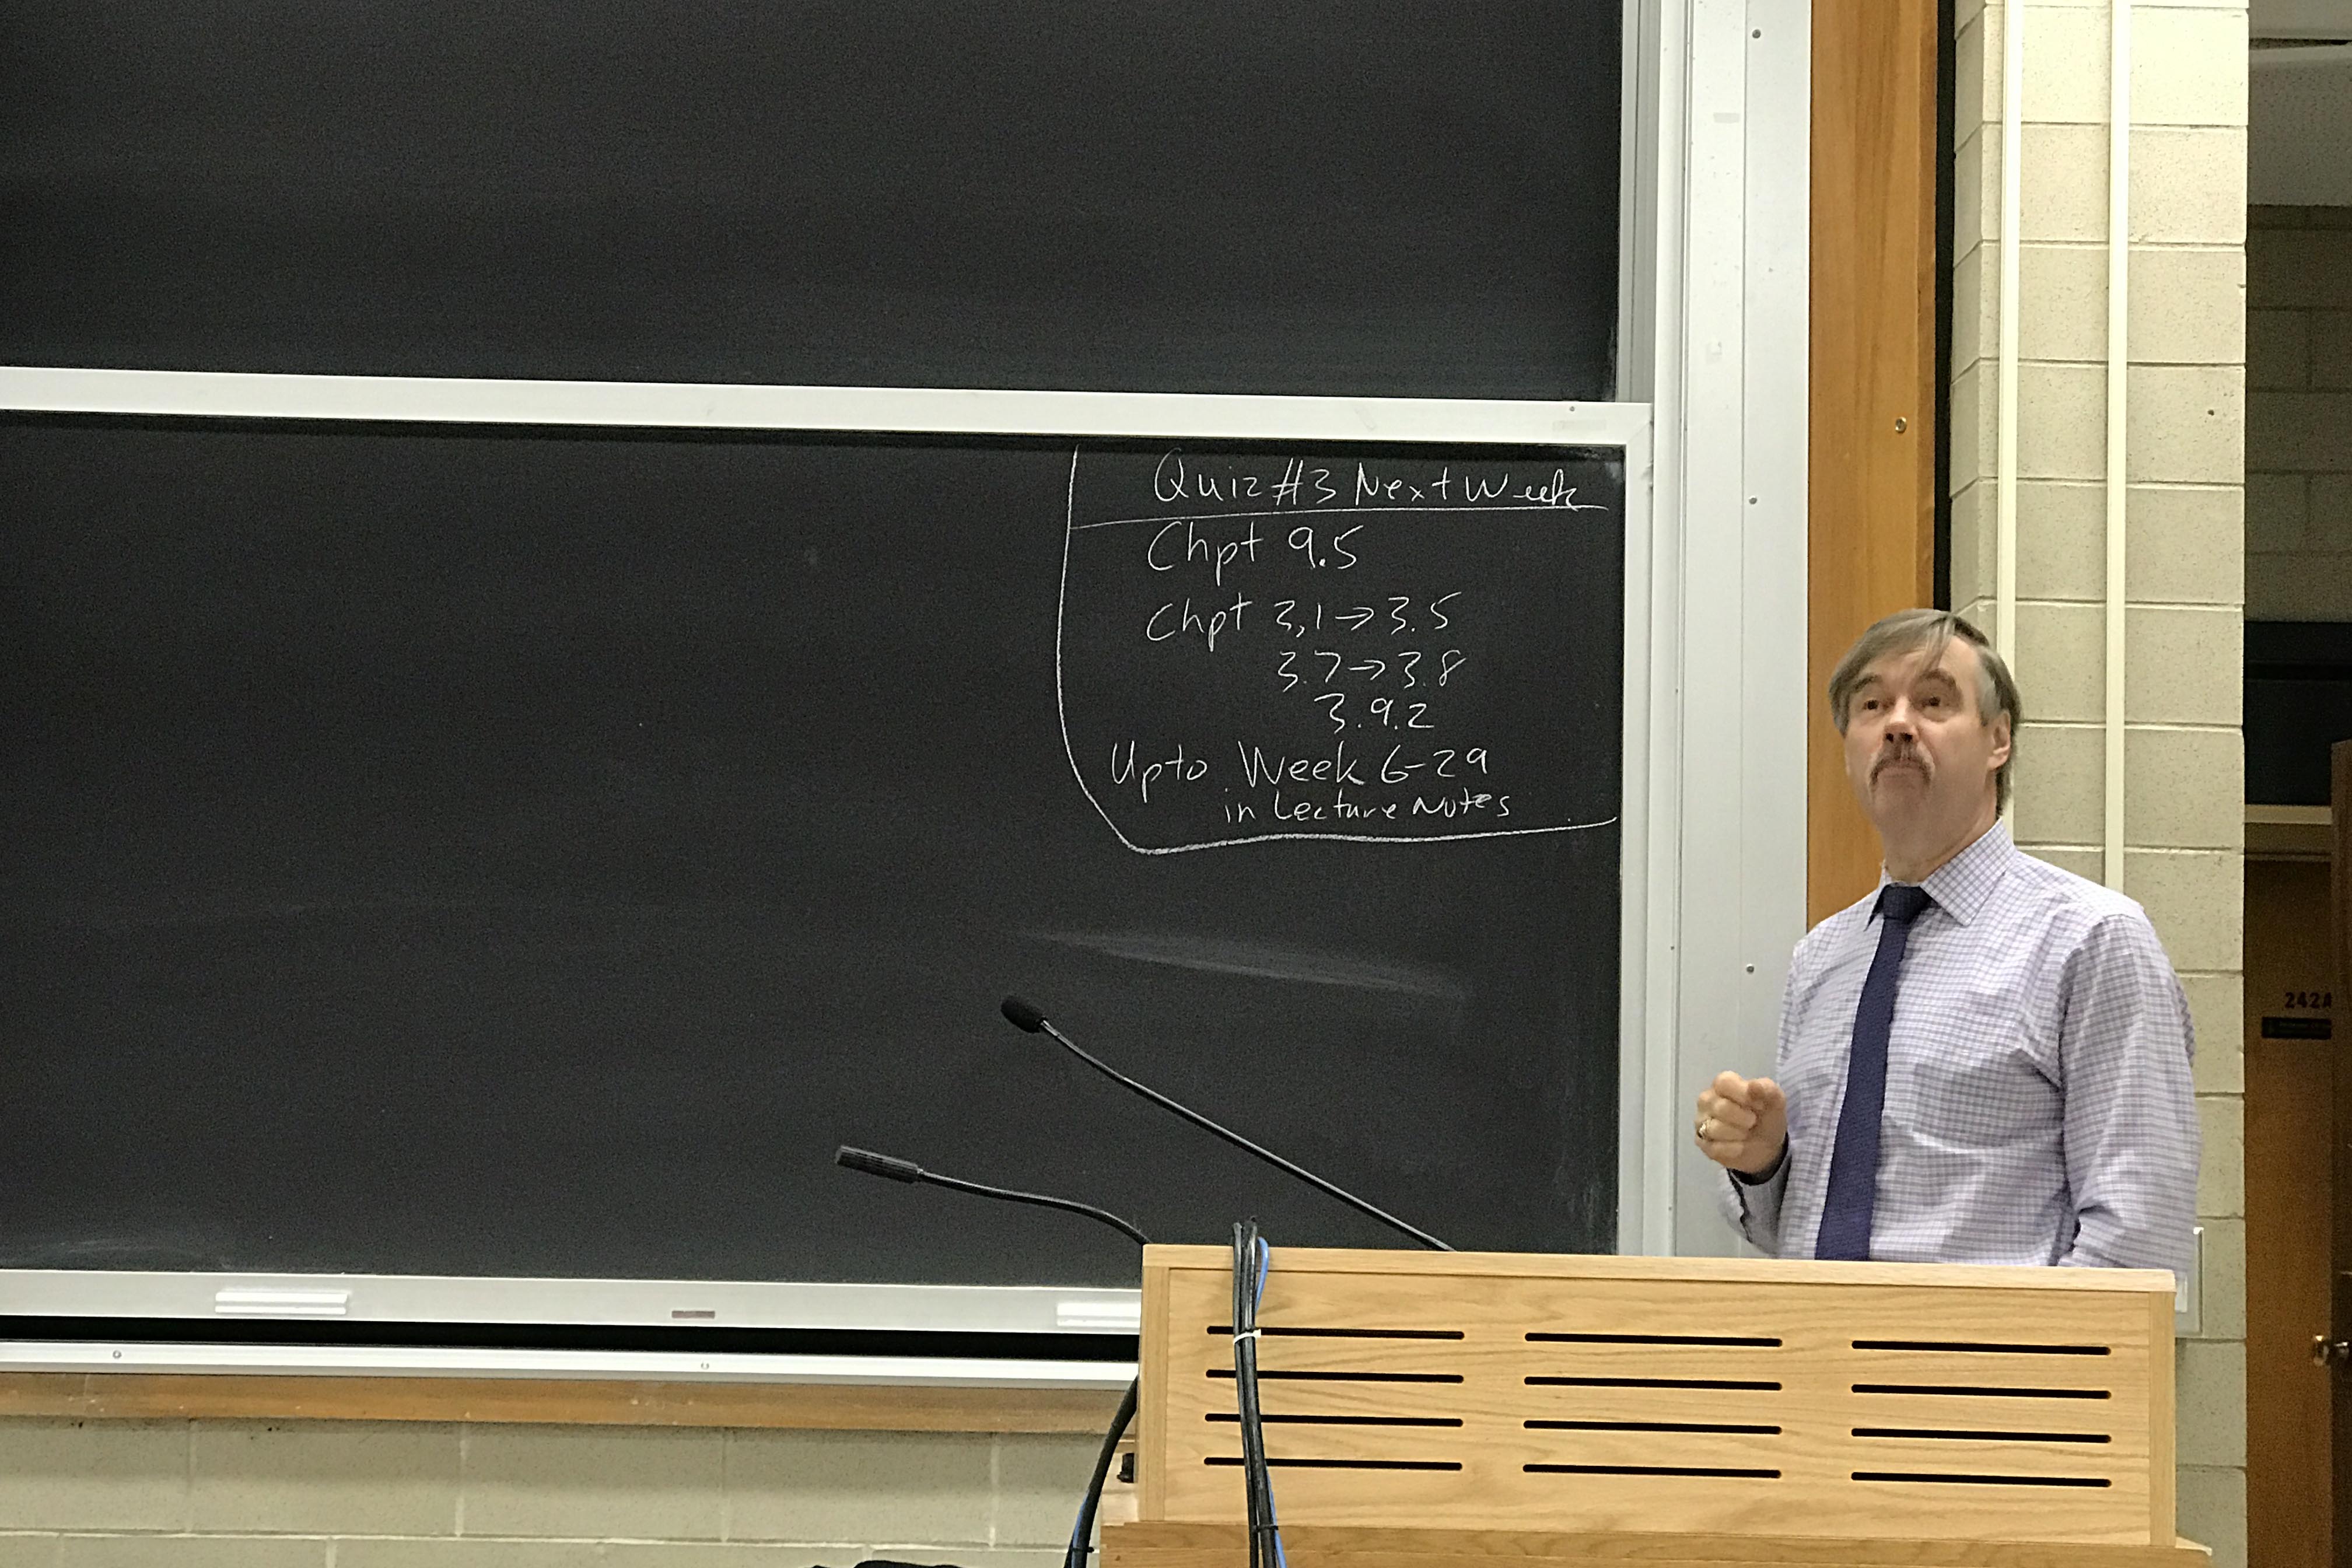 Quiz #3 Next Week
Chpt 9.5
Chpt 3.1 → 3.5
3.7 → 3.8
3.9.2
Upto Week 6-29
in Lecture Notes
242A